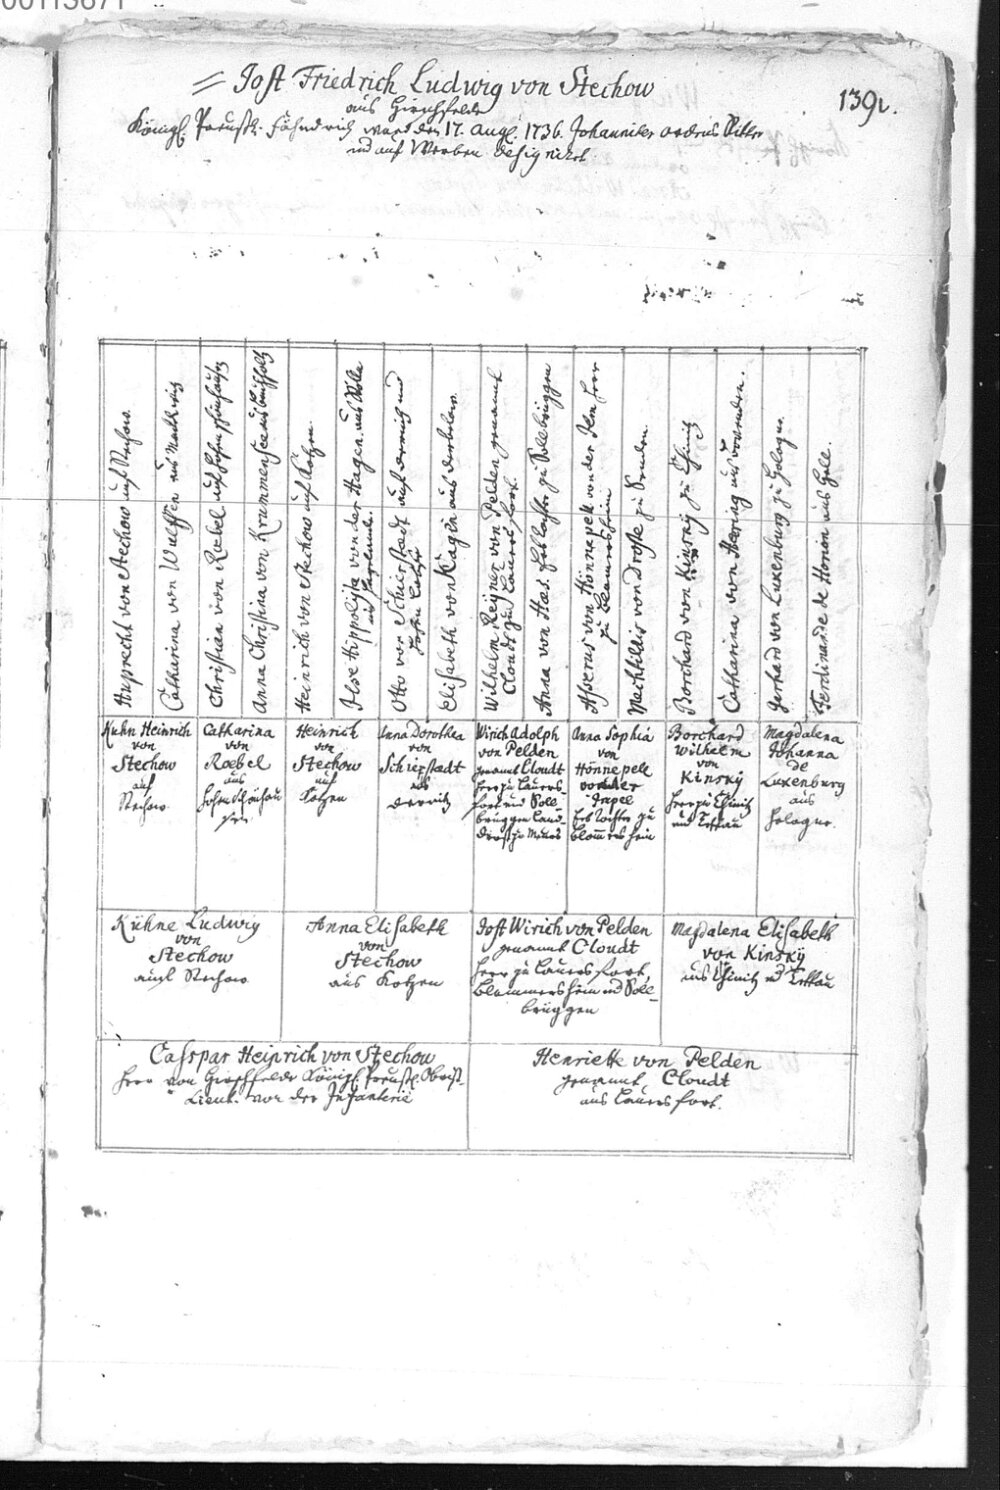 00113671
Jost Friedrich Ludwig von Stechow
139v.
aus Hirschfelde
Königl. Preusch. Fähndrich ward den 17. Augl. 1736. Johanniter ordens Ritter
und auf Werben designiret
Huprecht von Stechow auf Stechow.
Catharina von Wulffen aus
Christian von Rœbel auf Hohenschönhausen
Anna Christina von Krummensee aus
Heinrich von Stechow auf Kotzen.
Ilse Hippolyta von der Hagen, aus
Otto von Schierstædt auf und
Elisabeth von Hagen aus
Wilhelm Reyner von Pelden genannt
Cloudt zu Lauersfort.
Anna von Hæs. Erbtochter zu Sollbrüggen
Assverus von Hönnepell von der Herr
zu Blamersheim
Mechtildis von Droste zu Senden.
Borchard von Kinsky zu Chinitz
Catharina von Hæring aus
Gerhard von Luxenburg zu Hologne.
Ferdinande de Horion aus
Kuhn Heinrich
von
Stechow
auf
Stechow.
Catharina
von
Rœbel
aus
Hohenschönhau
sen.
Heinrich
von
Stechow
auf
Kotzen
Anna Dorothea
von
Schierstædt
aus
Wirich Adolph
von Pelden
genannt Cloudt
Herr zu Lauers-
fort und Soll-
brüggen Land-
drost zu Meurs
Anna Sophia
von
Hönnepell
von der
Impel
Erbtochter zu
Blommersheim
Borchard
Wilhelm
von
Kinsky
Herr zu Chinitz
und Tettau
Magdalena
Johanna
de
Luxenburg
aus
Hologne.
Kühne Ludwig
von
Stechow
auf Stechow
Anna Elisabeth
von
Stechow
aus Kotzen
Jost Wirich von Pelden
genannt Cloudt
Herr zu Lauersfort,
Blommersheim und Soll-
brüggen
Magdalena Elisabeth
von Kinsky
aus Chinitz und Tettau
Casspar Heinrich von Stechow
Herr von Hirschfelde Königl. Preusch. Obrist-
Lieut. von der Infanterie
Henriette von Pelden
genannt Cloudt
aus Lauersfort.